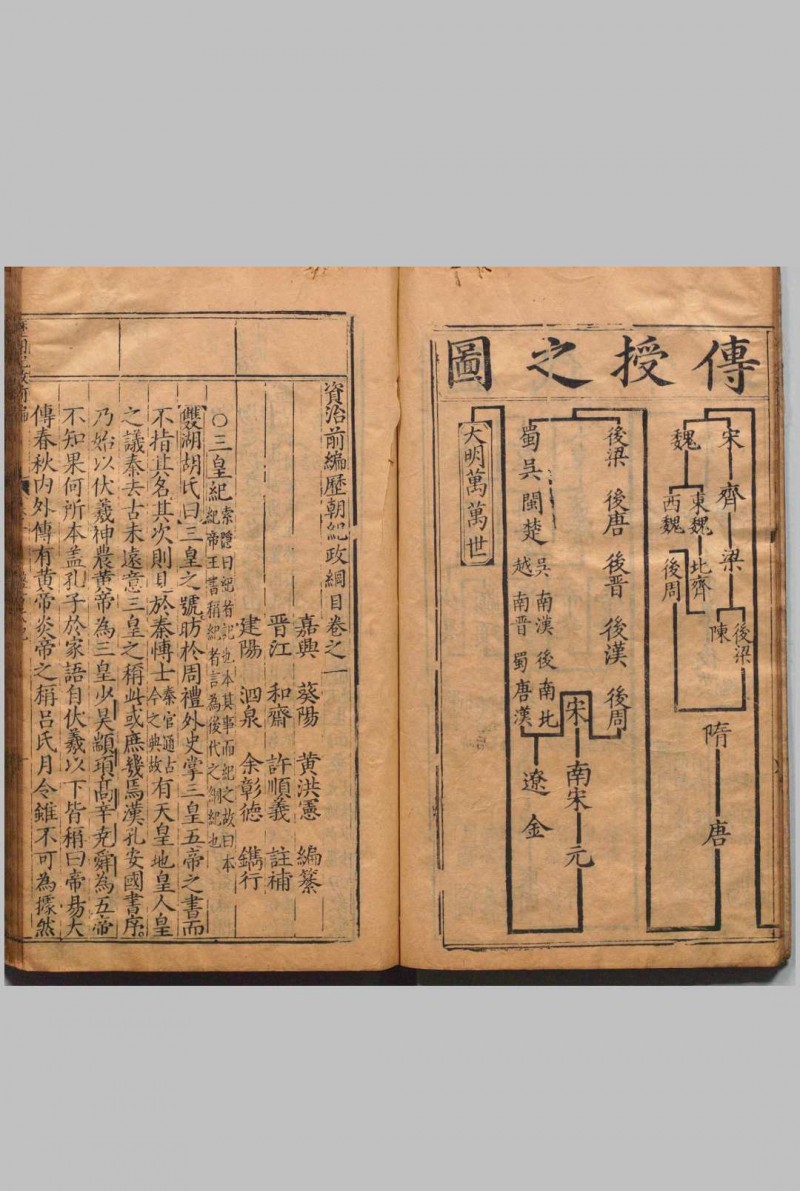 傳授之圖
宋 齊 梁 後梁 陳
魏 東魏 北齊
西魏 後周
隋 唐
後梁 後唐 後晋 後漢 後周
宋 南宋 元
蜀 吳 閩 楚 吳越 南漢 南晋 後蜀 南唐 北漢
遼 金
大明萬萬世
資治前編歷朝紀政綱目卷之一
嘉興 葵陽 黃洪憲 編纂
晋江 和齋 許順義 註補
建陽 泗泉 余彰德 鐫行
○三皇紀 索隱曰紀者記也本其事而紀之故曰本紀帝王書稱紀者言為後代之綱紀也
雙湖胡氏曰三皇之號昉於周禮外史掌三皇五帝之書而
不指其名其次則見於秦博士秦官通古今之典故有天皇地皇人皇
之議秦去古未遠意三皇之稱此或庶幾焉漢孔安國書序
乃始以伏羲神農黃帝為三皇少昊顓頊髙辛尭舜為五帝
不知果何所本盖孔子於家語自伏羲以下皆稱曰帝易大
傳春秋内外傳有黃帝炎帝之稱吕氏月令雖不可為據然